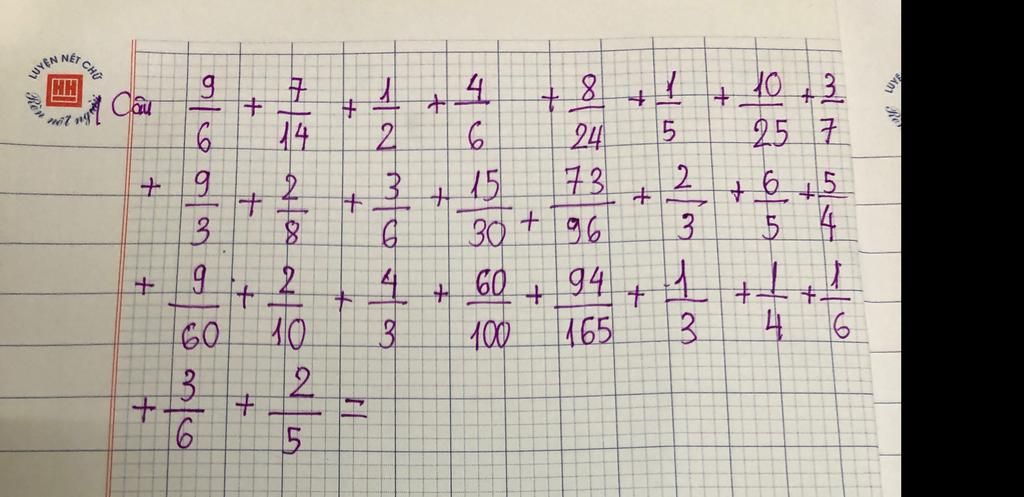 LUYỆN NÉT CHỮ
HH
1 Câu 9/6 + 7/14 + 1/2 + 4/6 + 8/24 + 1/5 + 10/25 + 3/7
+ 9/3 + 2/8 + 3/6 + 15/30 + 73/96 + 2/3 + 6/5 + 5/4
+ 9/60 + 2/10 + 4/3 + 60/100 + 94/165 + 1/3 + 1/4 + 1/6
+ 3/6 + 2/5 =